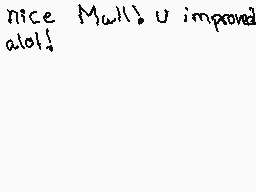 nice Mall! U improved
alot!